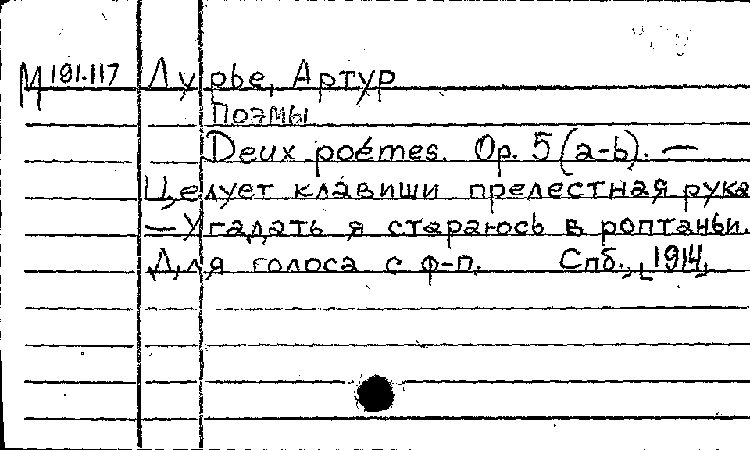 М 191.117 Лурье, Артур
Поэмы
Deux poémes. Op. 5 (a-b). —
Целует клавиши прелестная рука
— Угадать я стараюсь в роптаньи.
Для голоса с ф-п. Спб., 1914,